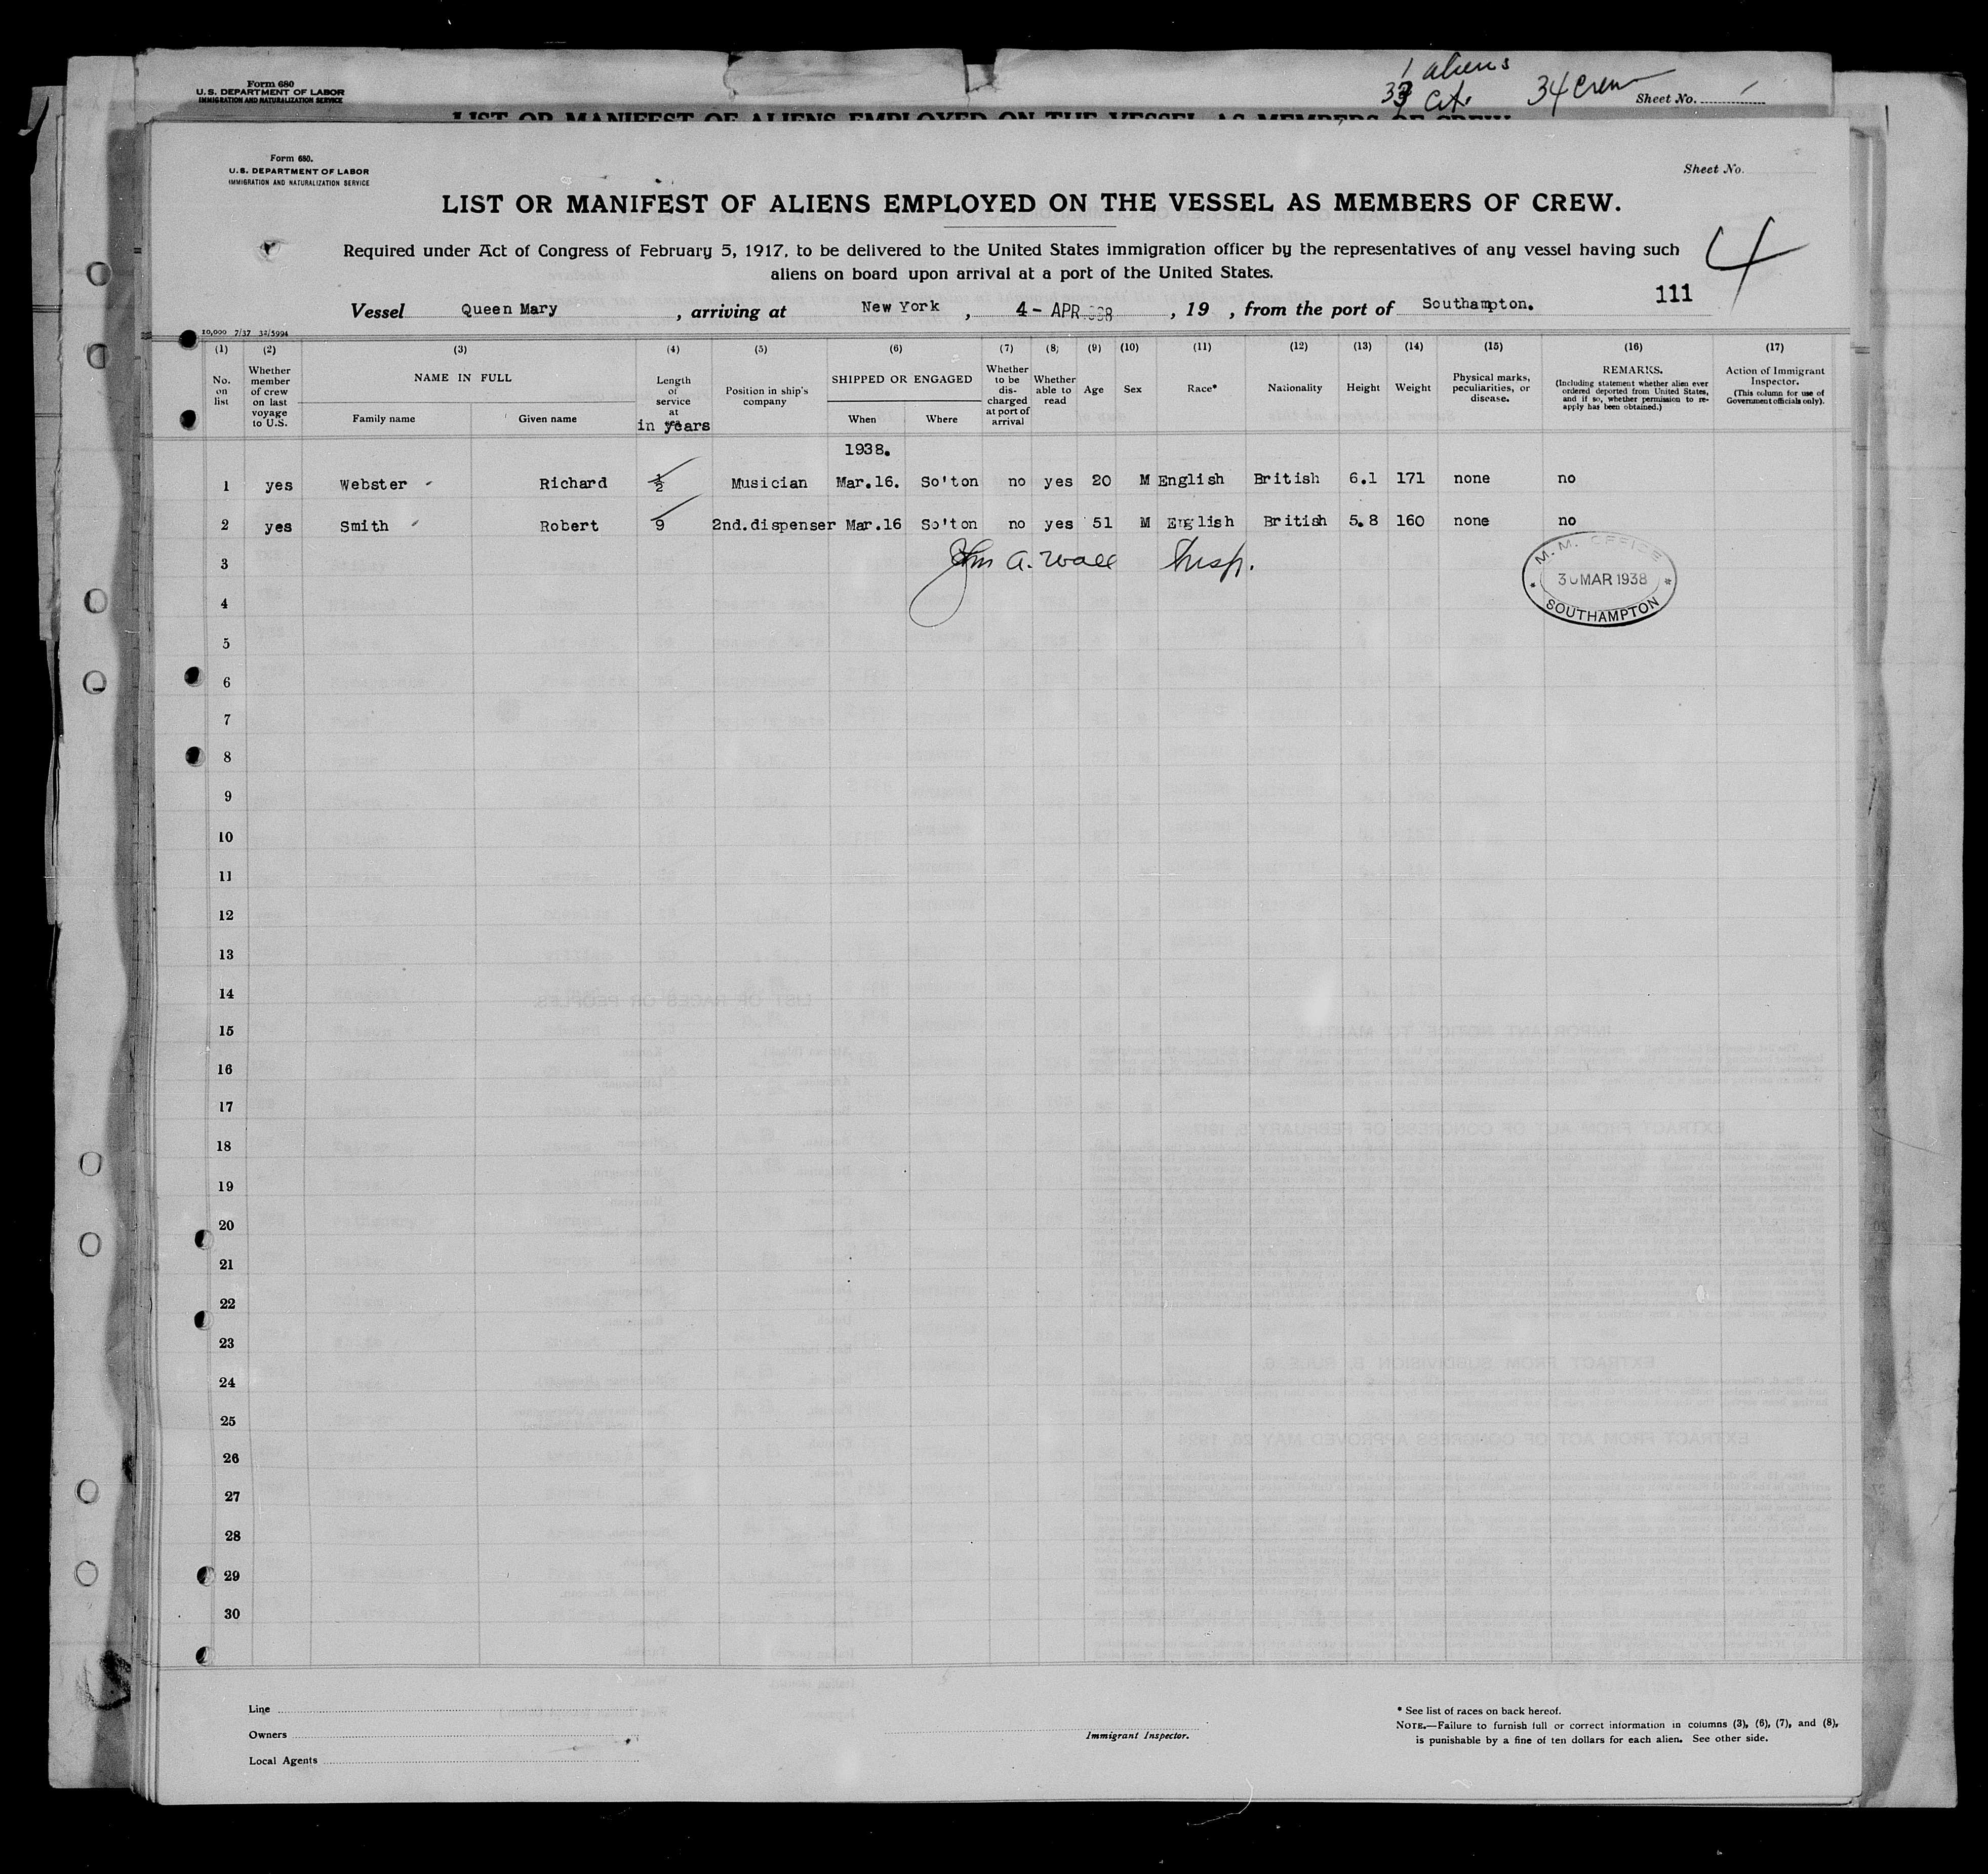 Form 680
U. S. DEPARTMENT OF LABOR
IMMIGRATION AND NATURALIZATION SERVICE
1 aliens
33 Cit.
34 Crew
Sheet No.
LIST OR MANIFEST OF ALIENS EMPLOYED ON THE VESSEL AS MEMBERS OF CREW
Form 680.
U. S. DEPARTMENT OF LABOR
IMMIGRATION AND NATURALIZATION SERVICE
Sheet No.
LIST OR MANIFEST OF ALIENS EMPLOYED ON THE VESSEL AS MEMBERS OF CREW.
4
Required under Act of Congress of February 5, 1917, to be delivered to the United States immigration officer by the representatives of any vessel having such
aliens on board upon arrival at a port of the United States.
111
Vessel Queen Mary, arriving at New York, 4- APR 1938, 19 , from the port of Southampton.
10,000 7/37 32/5994
(1) (2) (3) (4) (5) (6) (7) (8) (9) (10) (11) (12) (13) (14) (15) (16) (17)
No. on list
Whether member of crew on last voyage to U.S.
NAME IN FULL
Family name Given name
Length of service at
in years
Position in ship's company
SHIPPED OR ENGAGED
When Where
Whether to be dis-charged at port of arrival
Whether able to read
Age
Sex
Race*
Nationality
Height
Weight
Physical marks, peculiarities, or disease.
REMARKS.
(Including statement whether alien ever ordered deported from United States, and if so, whether permission to re-apply has been obtained.)
Action of Immigrant Inspector.
(This column for use of Government officials only).
1938.
1 yes Webster Richard ½ Musician Mar.16. So'ton no yes 20 M English British 6.1 171 none no
2 yes Smith Robert 9 2nd.dispenser Mar.16 So'ton no yes 51 M English British 5.8 160 none no
John A. Wall Insp.
M. M. OFFICE
30 MAR 1938
SOUTHAMPTON
3
4
5
6
7
8
9
10
11
12
13
14
15
16
17
18
19
20
21
22
23
24
25
26
27
28
29
30
Line
Owners
Local Agents
Immigrant Inspector.
* See list of races on back hereof.
NOTE.—Failure to furnish full or correct information in columns (3), (6), (7), and (8),
is punishable by a fine of ten dollars for each alien. See other side.